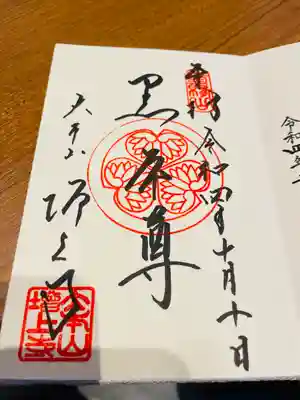 奉拝 令和四年十月十日
黒本尊
大本山 増上寺
大本山
増上寺
令和四年